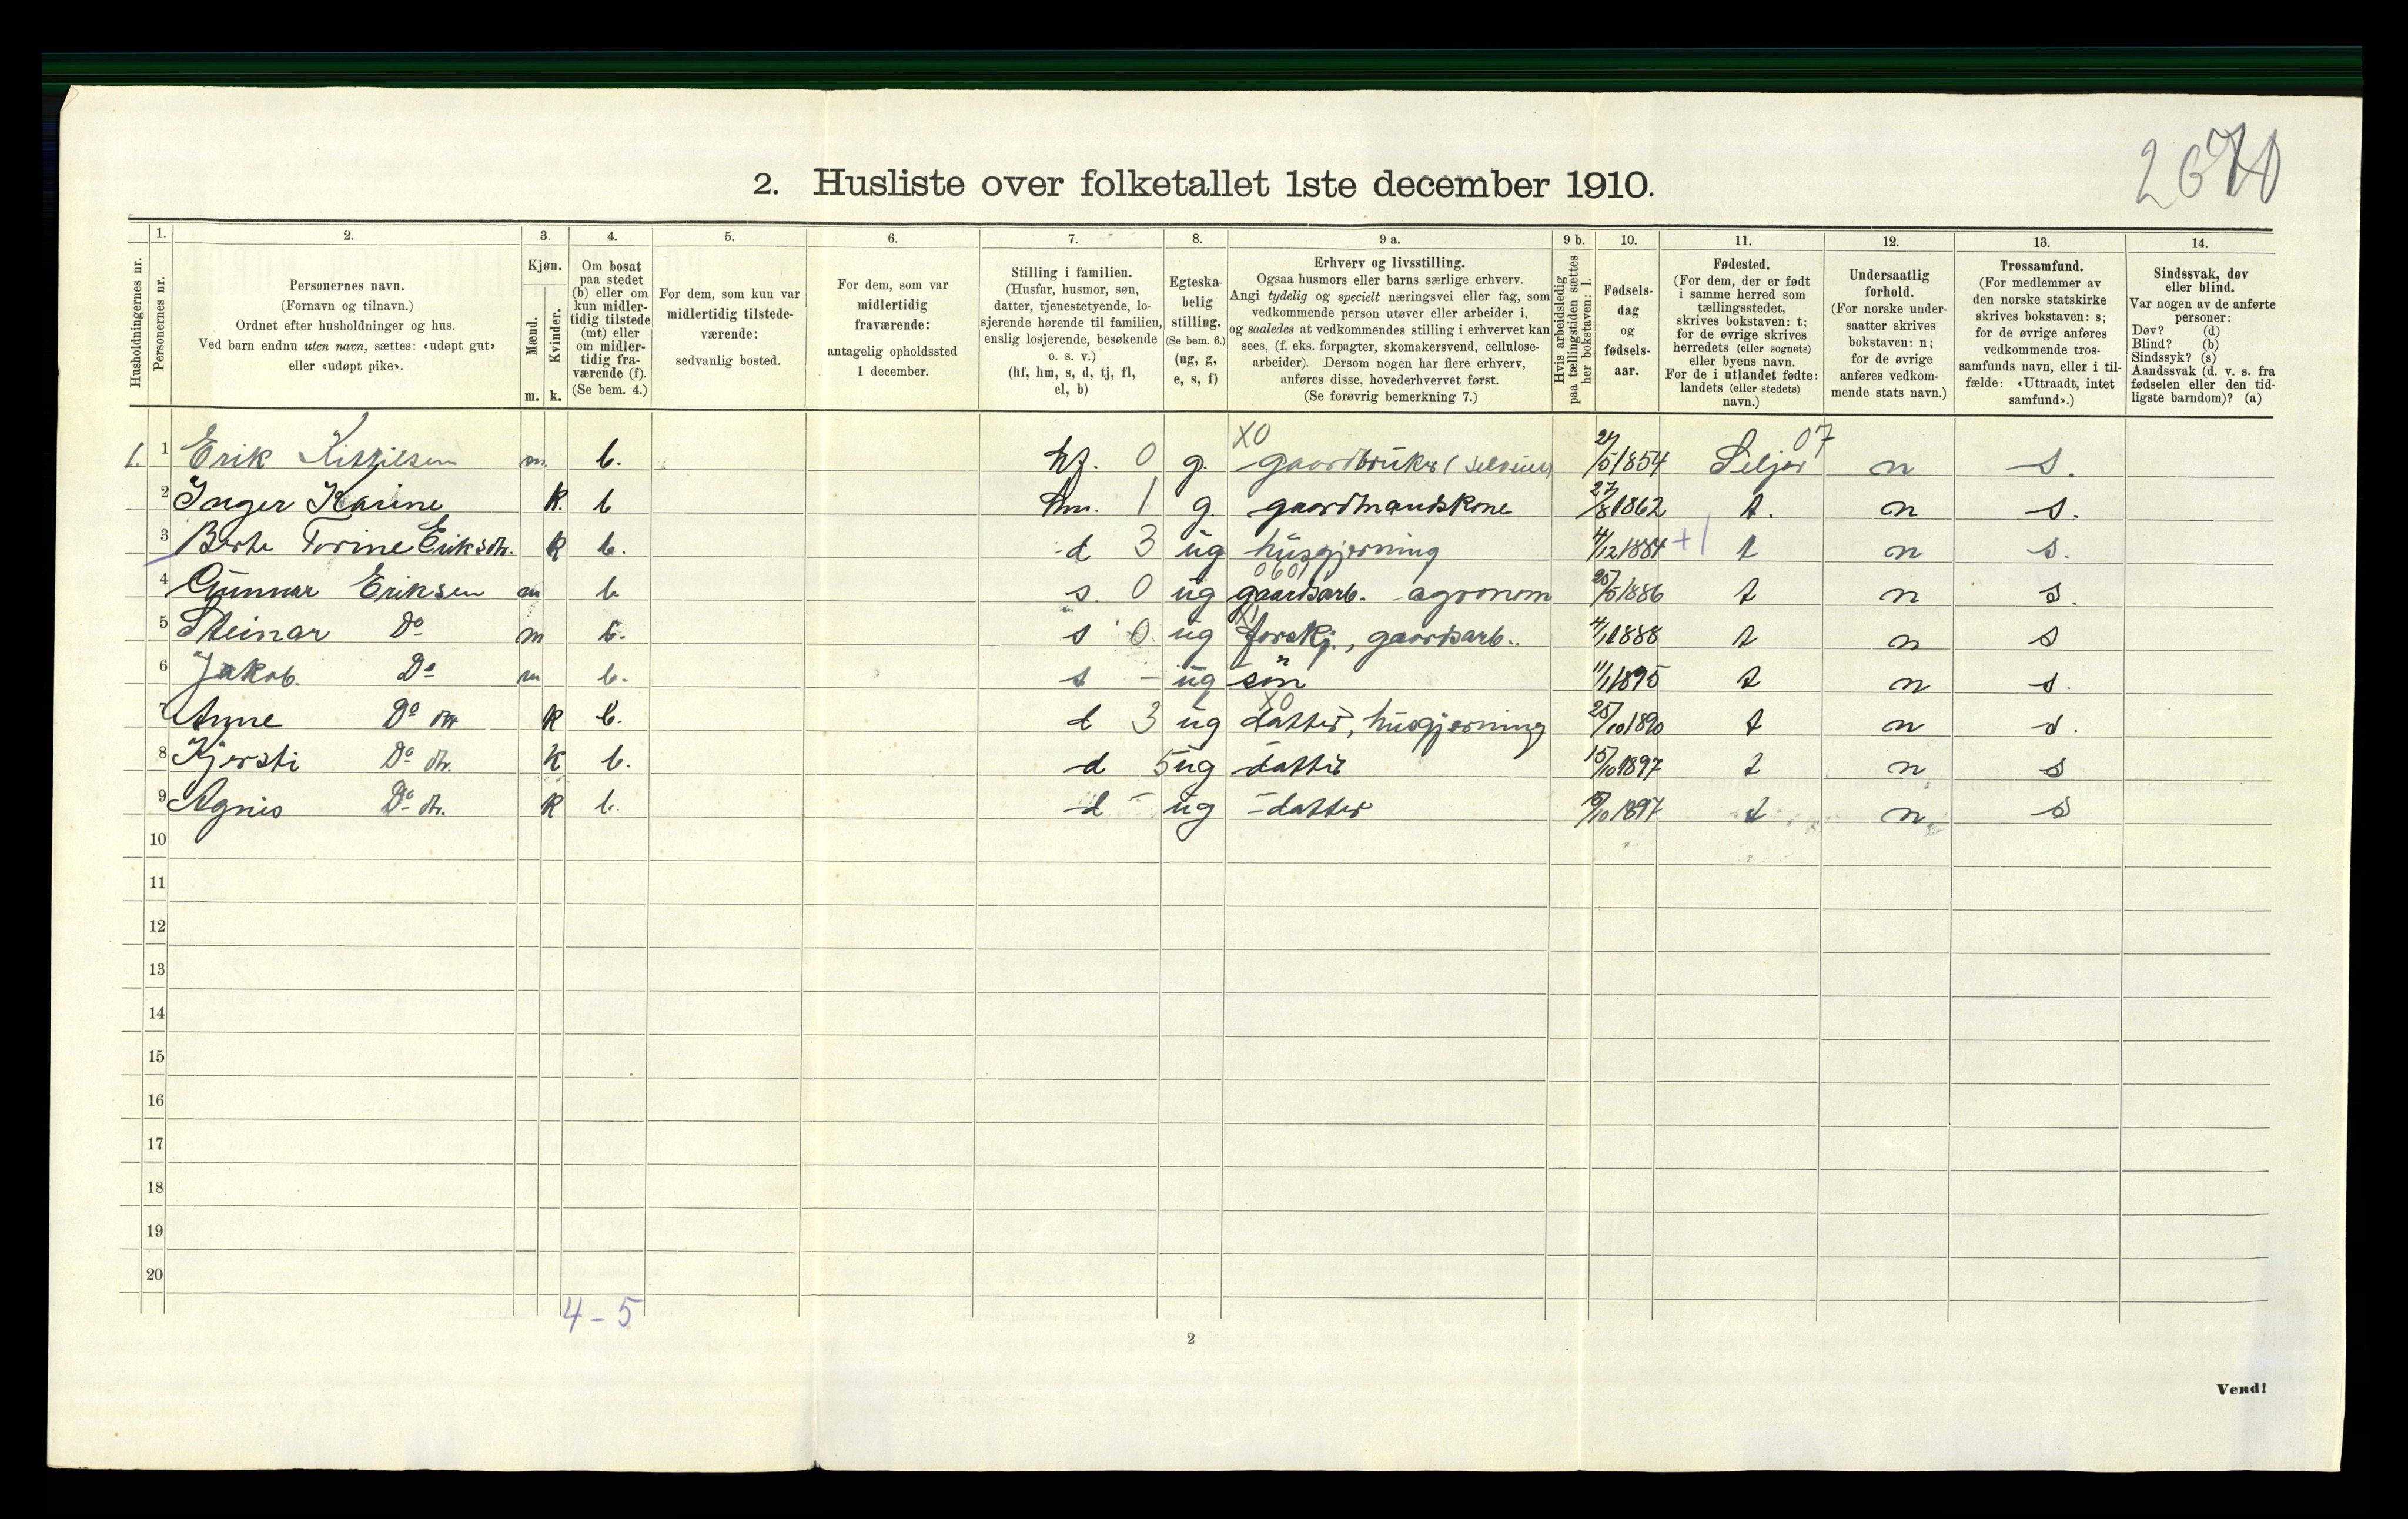 2670
2. Husliste over folketallet 1ste december 1910.
Husholdningernes nr.
1. Personernes nr.
2. Personernes navn.
(Fornavn og tilnavn.)
Ordnet efter husholdninger og hus.
Ved barn endnu uten navn, sættes: «udøpt gut»
eller «udøpt pike».
3. Kjøn.
Mænd. Kvinder.
m. k.
4. Om bosat
paa stedet
(b) eller om
kun midler-
tidig tilstede
(mt) eller
om midler-
tidig fra-
værende (f).
(Se bem. 4.)
5. For dem, som kun var
midlertidig tilstede-
værende:
sedvanlig bosted.
6. For dem, som var
midlertidig
fraværende:
antagelig opholdssted
1 december.
7. Stilling i familien.
(Husfar, husmor, søn,
datter, tjenestetyende, lo-
sjerende hørende til familien,
enslig losjerende, besøkende
o. s. v.)
(hf, hm, s, d, tj, fl,
el, b)
8. Egteska-
belig
stilling.
(Se bem. 6.)
(ug, g,
e, s, f)
9 a. Erhverv og livsstilling.
Ogsaa husmors eller barns særlige erhverv.
Angi tydelig og specielt næringsvei eller fag, som
vedkommende person utøver eller arbeider i,
og saaledes at vedkommendes stilling i erhvervet kan
sees, (f. eks. forpagter, skomakersvend, cellulose-
arbeider). Dersom nogen har flere erhverv,
anføres disse, hovederhvervet først.
(Se forøvrig bemerkning 7.)
9 b. Hvis arbeidsledig
paa tællingstiden sættes
her bokstaven: l.
10. Fødsels-
dag
og
fødsels-
aar.
11. Fødested.
(For dem, der er født
i samme herred som
tællingsstedet,
skrives bokstaven: t;
for de øvrige skrives
herredets (eller sognets)
eller byens navn.
For de i utlandet fødte:
landets (eller stedets)
navn.)
12. Undersaatlig
forhold.
(For norske under-
saatter skrives
bokstaven: n;
for de øvrige
anføres vedkom-
mende stats navn.)
13. Trossamfund.
(For medlemmer av
den norske statskirke
skrives bokstaven: s;
for de øvrige anføres
vedkommende tros-
samfunds navn, eller i til-
fælde: «Uttraadt, intet
samfund».)
14. Sindssvak, døv
eller blind.
Var nogen av de anførte
personer:
Døv? (d)
Blind? (b)
Sindssyk? (s)
Aandssvak (d. v. s. fra
fødselen eller den tid-
ligste barndom)? (a)
X0 07
1. 1 Erik Kittilsen m. b. hf. 0 g. gaardbruker (selveier) 24/5 1854 Seljor n s.
2 Inger Karine k. b hm. 1 g. gaardmandskone 27/8 1862 t. n s.
3 Berte Torine Eriksdtr. k b. d 3 ug husgjerning 4/12 1884 +1 t n s.
060
4 Gunnar Eriksen m b s. 0 ug gaardsarb. agronom 25/5 1886 t n s.
X1
5 Steinar Do m b. s 0 ug forskj., gaardsarb. 4/1 1888 t n s
6 Jakob Do m b. s - ug søn 11/1 1895 t n s.
X0
7 Anne Do dtr k b. d 3 ug datter, husgjerning 25/10 1890 t n s.
8 Kjersti Do dtr. k b. d 5 ug datter 15/10 1897 t n s
9 Agnis Do dtr. k b. d - ug datter 15/10 1897 t n s
10
11
12
13
14
15
16
17
18
19
20
4 - 5
2
Vend!